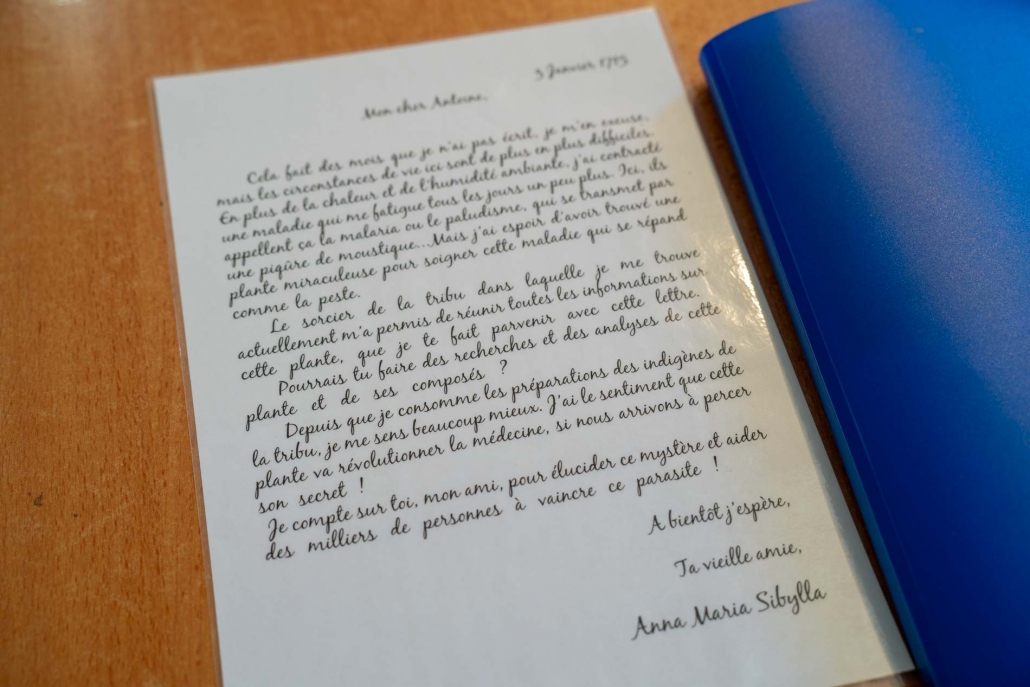 3 Janvier 1715
Mon cher Antoine,
Cela fait des mois que je n'ai pas écrit, je m'en excuse,
mais les circonstances de vie ici sont de plus en plus difficiles.
En plus de la chaleur et de l'humidité ambiante, j'ai contracté
une maladie qui me fatigue tous les jours un peu plus. Ici, ils
appellent ça la malaria ou le paludisme, qui se transmet par
une piqûre de moustique...Mais j'ai espoir d'avoir trouvé une
plante miraculeuse pour soigner cette maladie qui se répand
comme la peste.
Le sorcier de la tribu dans laquelle je me trouve
actuellement m'a permis de réunir toutes les informations sur
cette plante, que je te fait parvenir avec cette lettre.
Pourrais tu faire des recherches et des analyses de cette
plante et de ses composés ?
Depuis que je consomme les préparations des indigènes de
la tribu, je me sens beaucoup mieux. J'ai le sentiment que cette
plante va révolutionner la médecine, si nous arrivons à percer
son secret !
Je compte sur toi, mon ami, pour élucider ce mystère et aider
des milliers de personnes à vaincre ce parasite !
A bientôt j'espère,
Ta vieille amie,
Anna Maria Sibylla